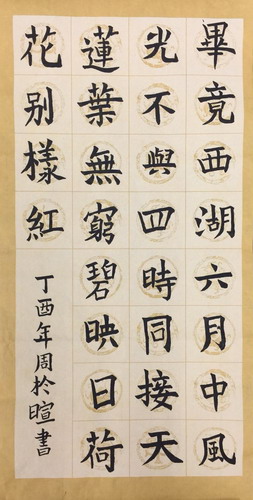 畢竟西湖六月中風
光不與四時同接天
蓮葉無窮碧映日荷
花别樣紅
丁酉年周於暄書